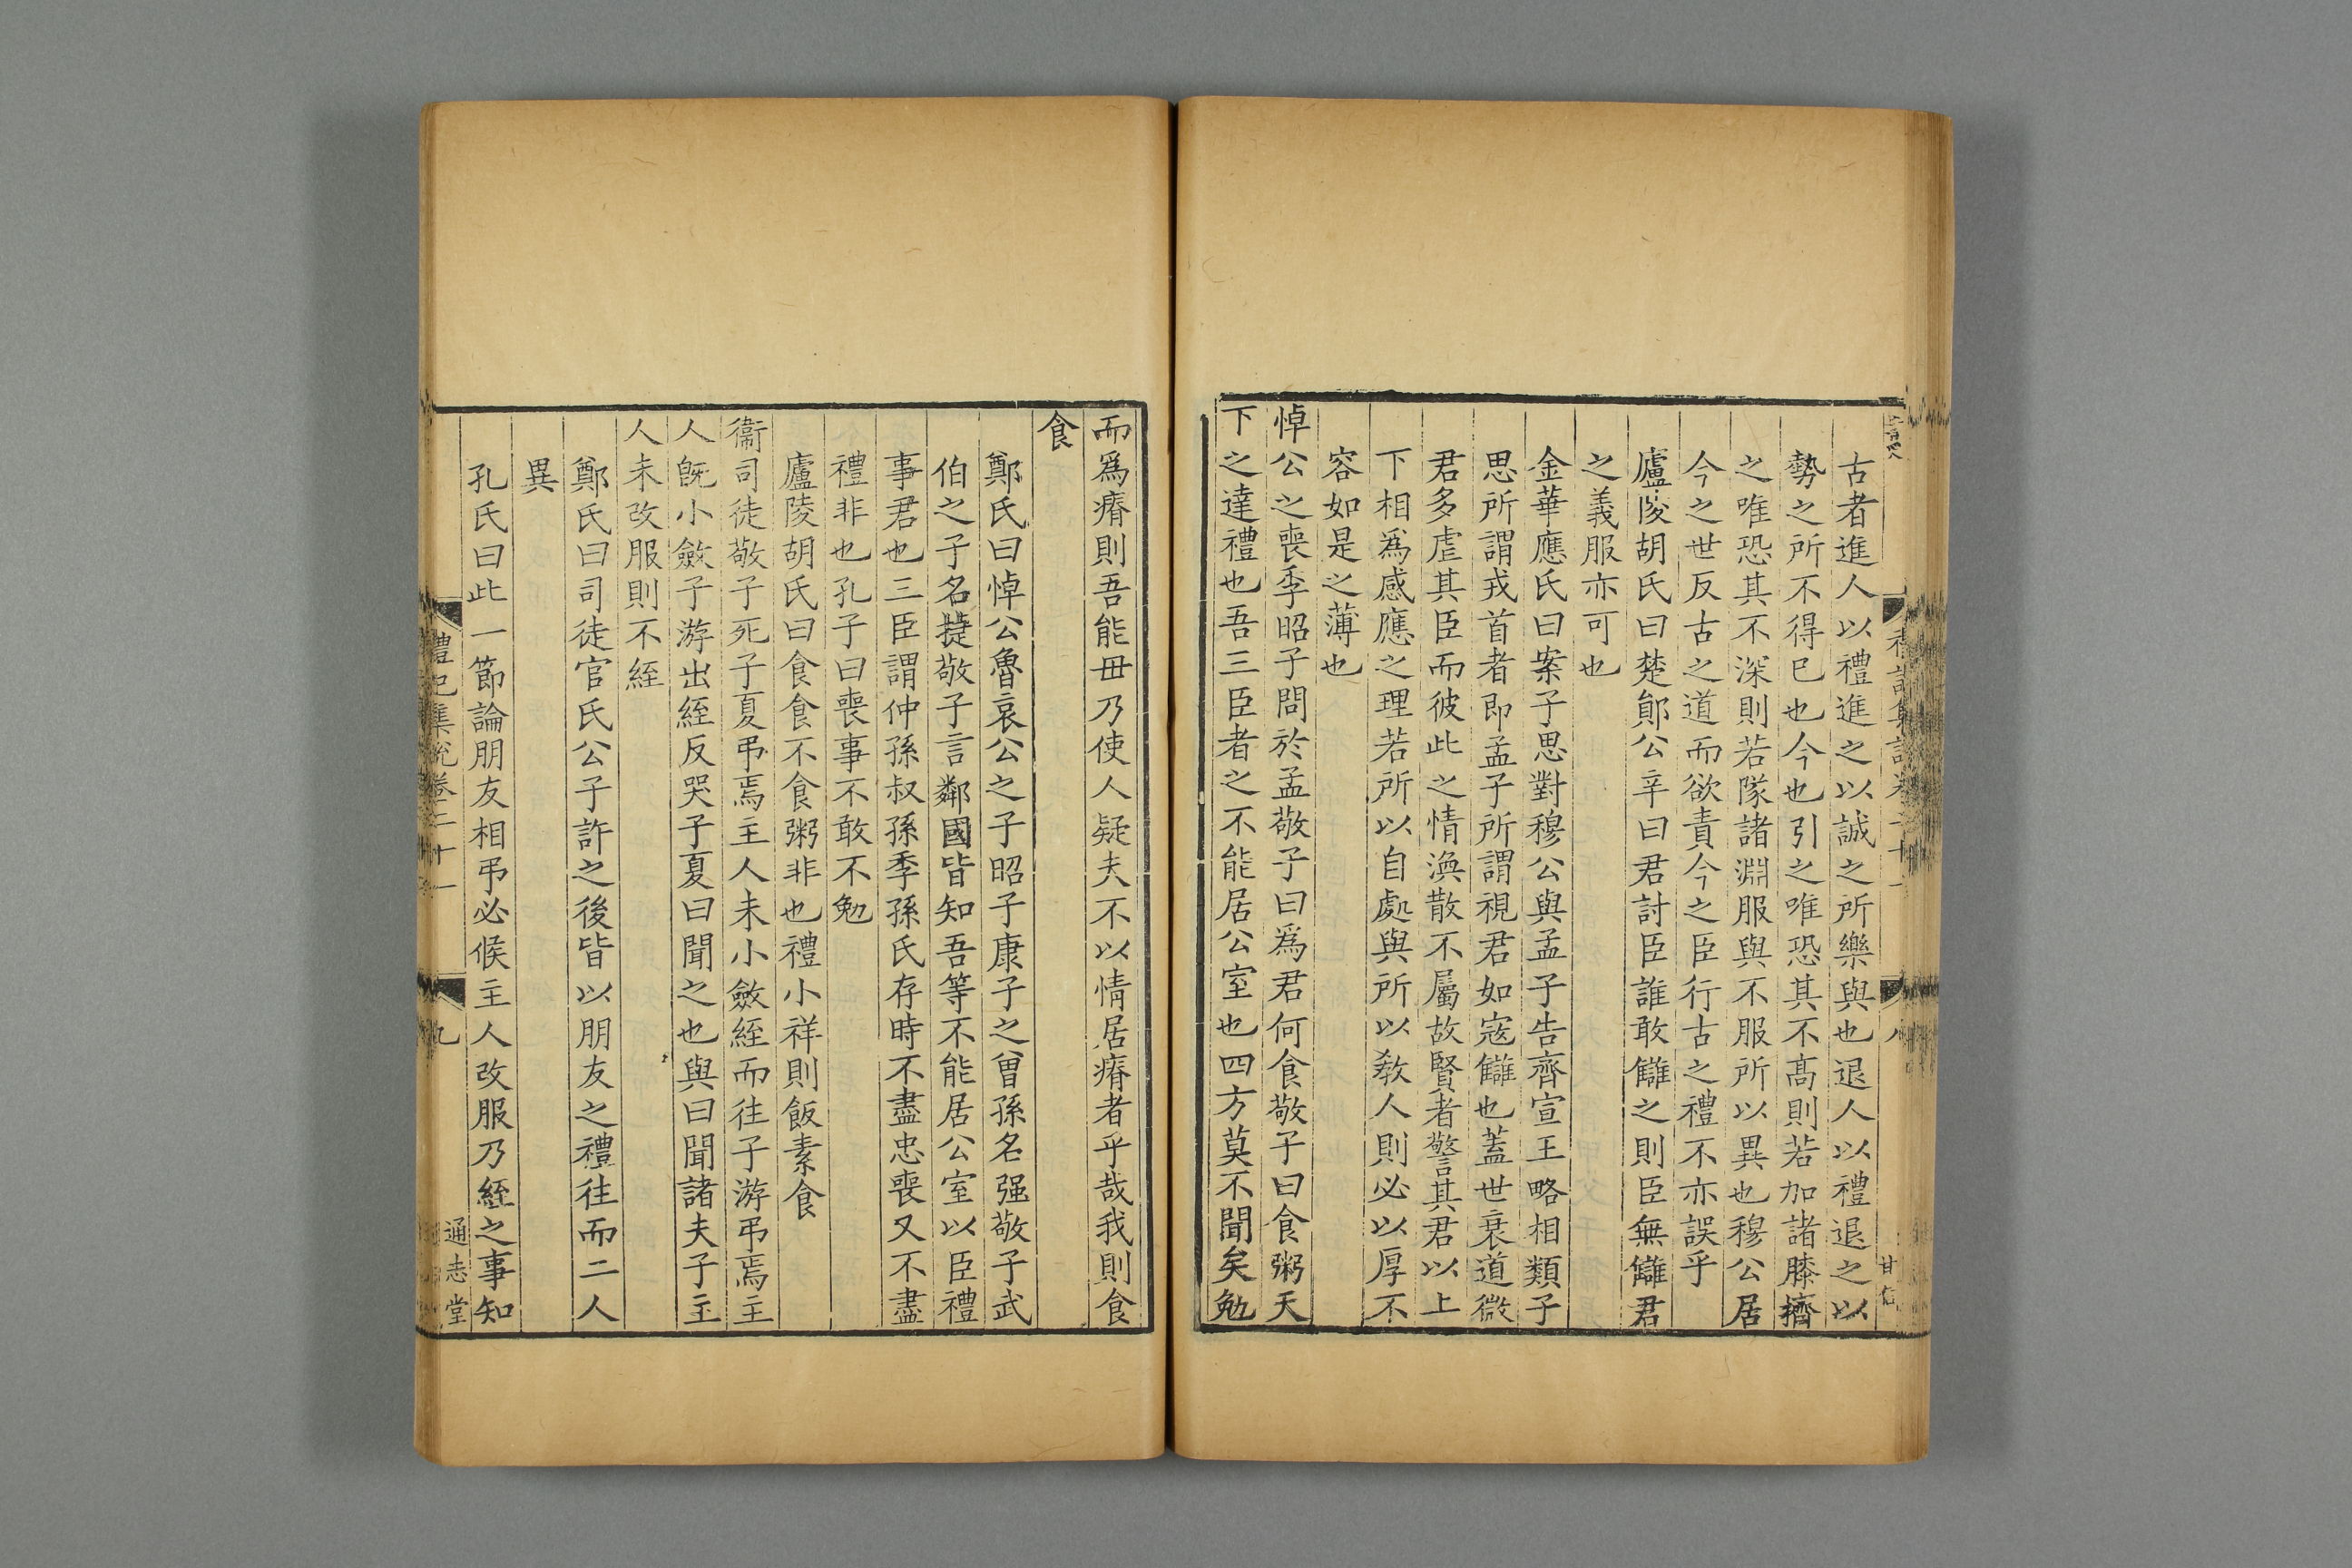 古者進人以禮進之以誠之所樂與也退人以禮退之以
勢之所不得已也今也引之唯恐其不髙則若加諸膝擠
之唯恐其不深則若隊諸淵服與不服所以異也穆公居
今之世反古之道而欲責今之臣行古之禮不亦誤乎
廬陵胡氏曰楚鄖公辛曰君討臣誰敢讎之則臣無讎君
之義服亦可也
金華應氏曰案子思對穆公與孟子告齊宣王略相類子
思所謂戎首者即孟子所謂視君如寇讎也蓋世衰道微
君多虐其臣而彼此之情渙散不屬故賢者警其君以上
下相為感應之理若所以自處與所以教人則必以厚不
容如是之薄也
悼公之喪季昭子問於孟敬子曰爲君何食敬子曰食粥天
下之達禮也吾三臣者之不能居公室也四方莫不聞矣勉
八
而爲瘠則吾能毌乃使人疑夫不以情居瘠者乎哉我則食
食
鄭氏曰悼公魯哀公之子昭子康子之曾孫名强敬子武
伯之子名㨗敬子言鄰國皆知吾等不能居公室以臣禮
事君也三臣謂仲孫叔孫季孫氏存時不盡忠喪又不盡
禮非也孔子曰喪事不敢不勉
廬陵胡氏曰食食不食粥非也禮小祥則飯素食
衞司徒敬子死子夏弔焉主人未小斂絰而往子游弔焉主
人既小斂子游出絰反哭子夏曰聞之也與曰聞諸夫子主
人未改服則不絰
鄭氏曰司徒官氏公子許之後皆以朋友之禮往而二人
異
孔氏曰此一節論朋友相弔必候主人改服乃絰之事知
禮記集説卷二十一
九
通志堂